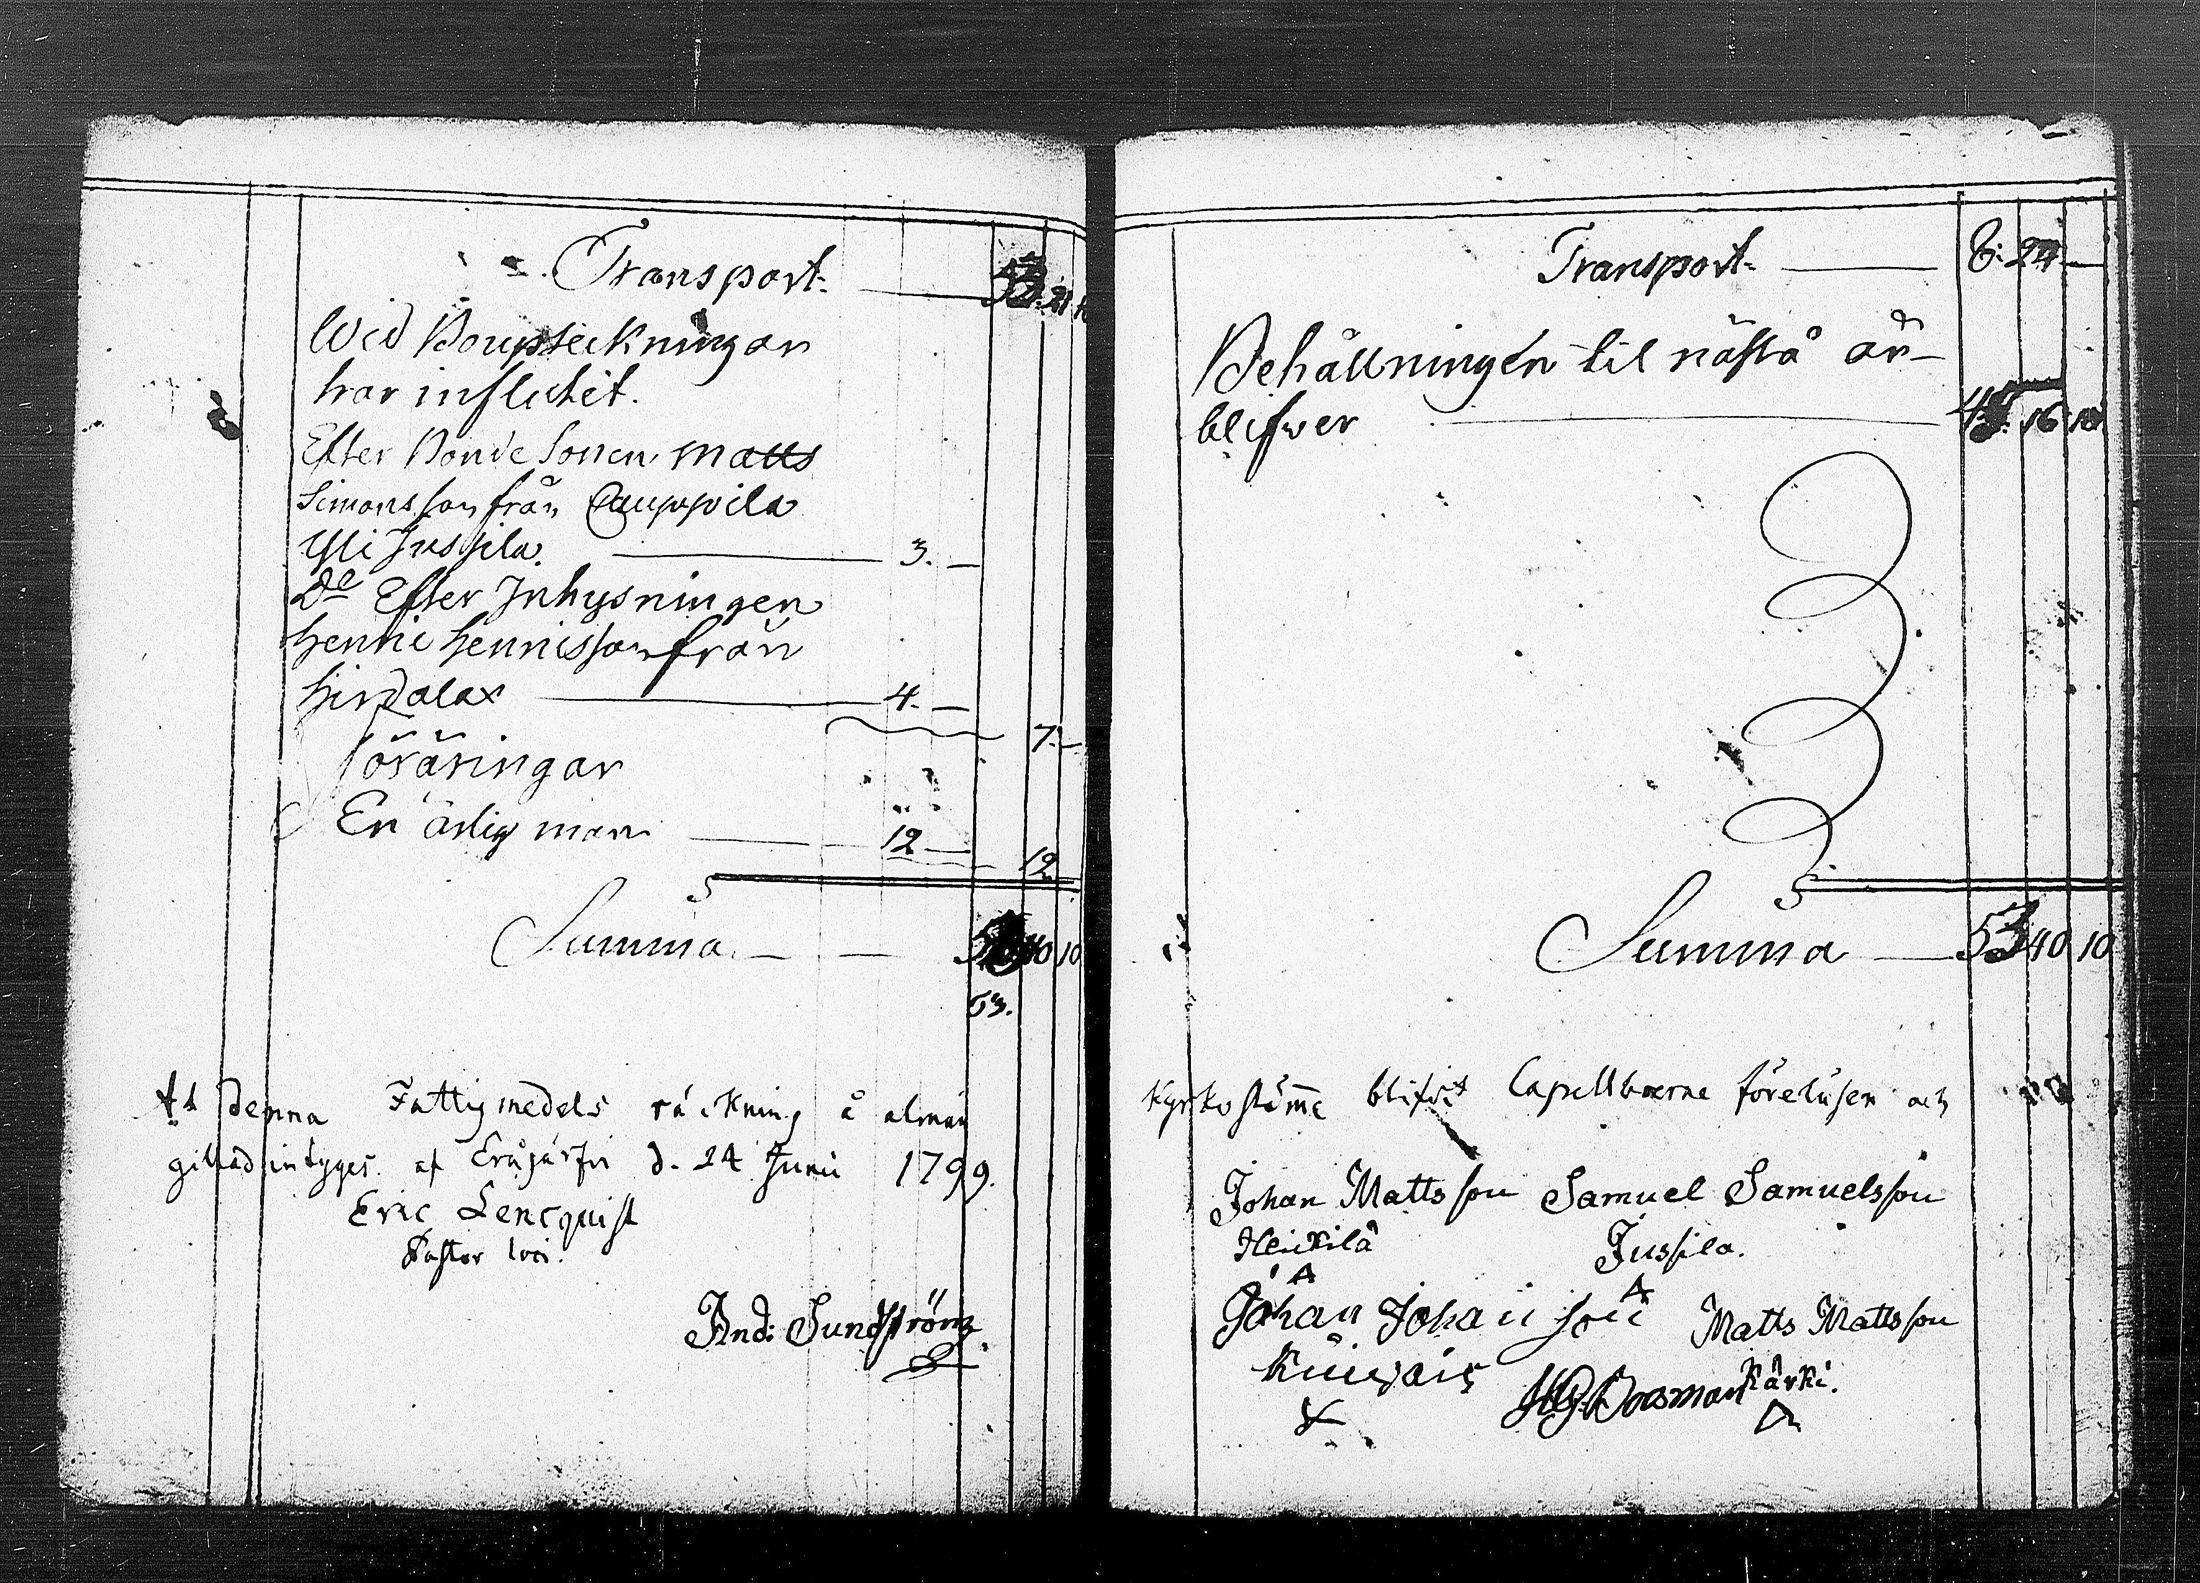 Transport. 53. 21. 10
Wid Boupteckningar
har influtit.
Efter Bonde Sonen Matts
Simonsson från Cauppila
Yli Jussila. 3. —
D:o Efter Inhysningen
Henric Hennisson från
Hirdalax 4. —
7. —
föräringar
En ärlig man 12 —
12
Summa. — — 40 10
53.
At denna Fattigmedels räckning å almän
gillad intygas af Eräjärfvi d. 24 Junii 1799.
Eric Lencquist
Pastor loci.
And: Sundström
Transport. 8. 24 —
Behållningen til nästa år
blifwer 45. 16. 10
Summa 53 40 10
Kyrkostämma blifvit Capellboerne föreläsen och
Johan Mattsson Samuel Samuelsson
Heikkilä Jussila.
Johan Johansson Matts Mattsson
Kärki.
HG. Boosman